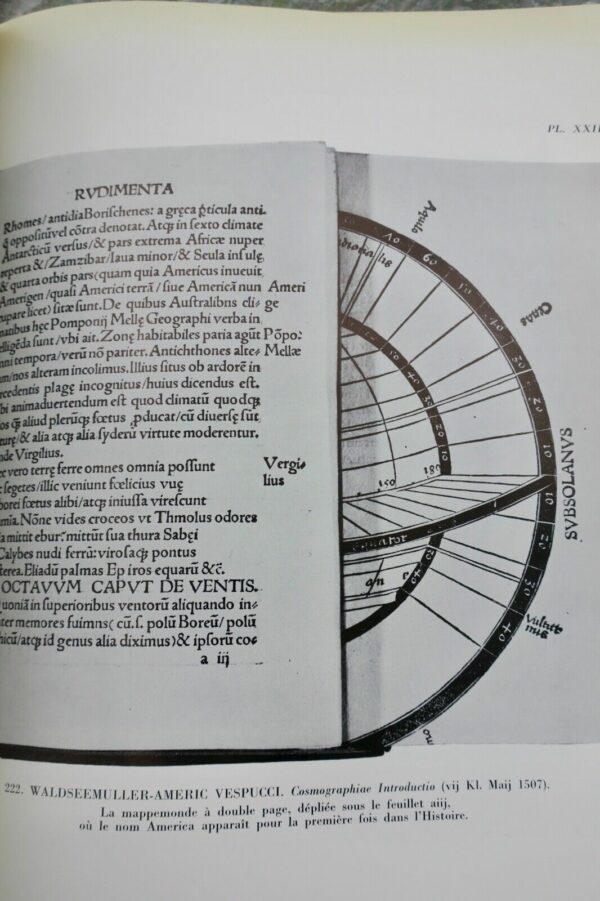 PL. XXII
RVDIMENTA
Rhomes/antidia Borischenes: a gręca p̱ticula anti.
oppositũ vel cõtra denotat. Atq̨ in sexto climate
Antarcticũ versus/& pars extrema Africæ nuper
reperta &/Zamzibar/Iaua minor/& Seula insulę
& quarta orbis pars (quam quia Americus inuenit
Amerigen/quasi Americi terrã/siue Americã nun Ameri
cupare licet) sitæ sunt. De quibus Australibus cli- ge
matibus hęc Pomponij Mellę Geographi verba in
telligẽda sunt/vbi ait. Zonę habitabiles paria agũt Põpo:
anni tempora/verũ nõ pariter. Antichthones alte- Mellæ
rum/nos alteram incolimus. Illius situs ob ardorẽ in
tercedentis plagę incognitus/huius dicendus est.
Vbi animaduertendum est quod climatũ quodq̨
os q̨ aliud plerũq̨ fœtus p̱ducat/cũ diuersę sũt
turę/& alia atq̨ alia syderũ virtute moderentur.
nde Virgilius.
ec vero terrę ferre omnes omnia possunt Vergi-
c segetes/illic veniunt fœlicius vuę lius
borei fœtus alibi/atq̨ iniussa virescunt
mia. Nõne vides croceos vt Thmolus odores
a mittit ebur: mittũt sua thura Sabęi
Calybes nudi ferrũ: virosaq̨ pontus
terea. Eliadũ palmas Epiros equarũ &c̃.
OCTAVVM CAPVT DE VENTIS.
Quoniã in superioribus ventorũ aliquando in-
ter memores fuimns (cũ.s. polũ Boreũ/polũ
hicũ/atq̨ id genus alia diximus) & ipsorũ co-
a iij
Aquilo
60
40
30
20
10
10
20
30
40
SVBSOLANVS
20
10
180
150
Vulturnus
222. WALDSEEMULLER-AMERIC VESPUCCI. Cosmographiae Introductio (vij Kl. Maij 1507).
La mappemonde à double page, dépliée sous le feuillet aiij,
où le nom America apparaît pour la première fois dans l'Histoire.